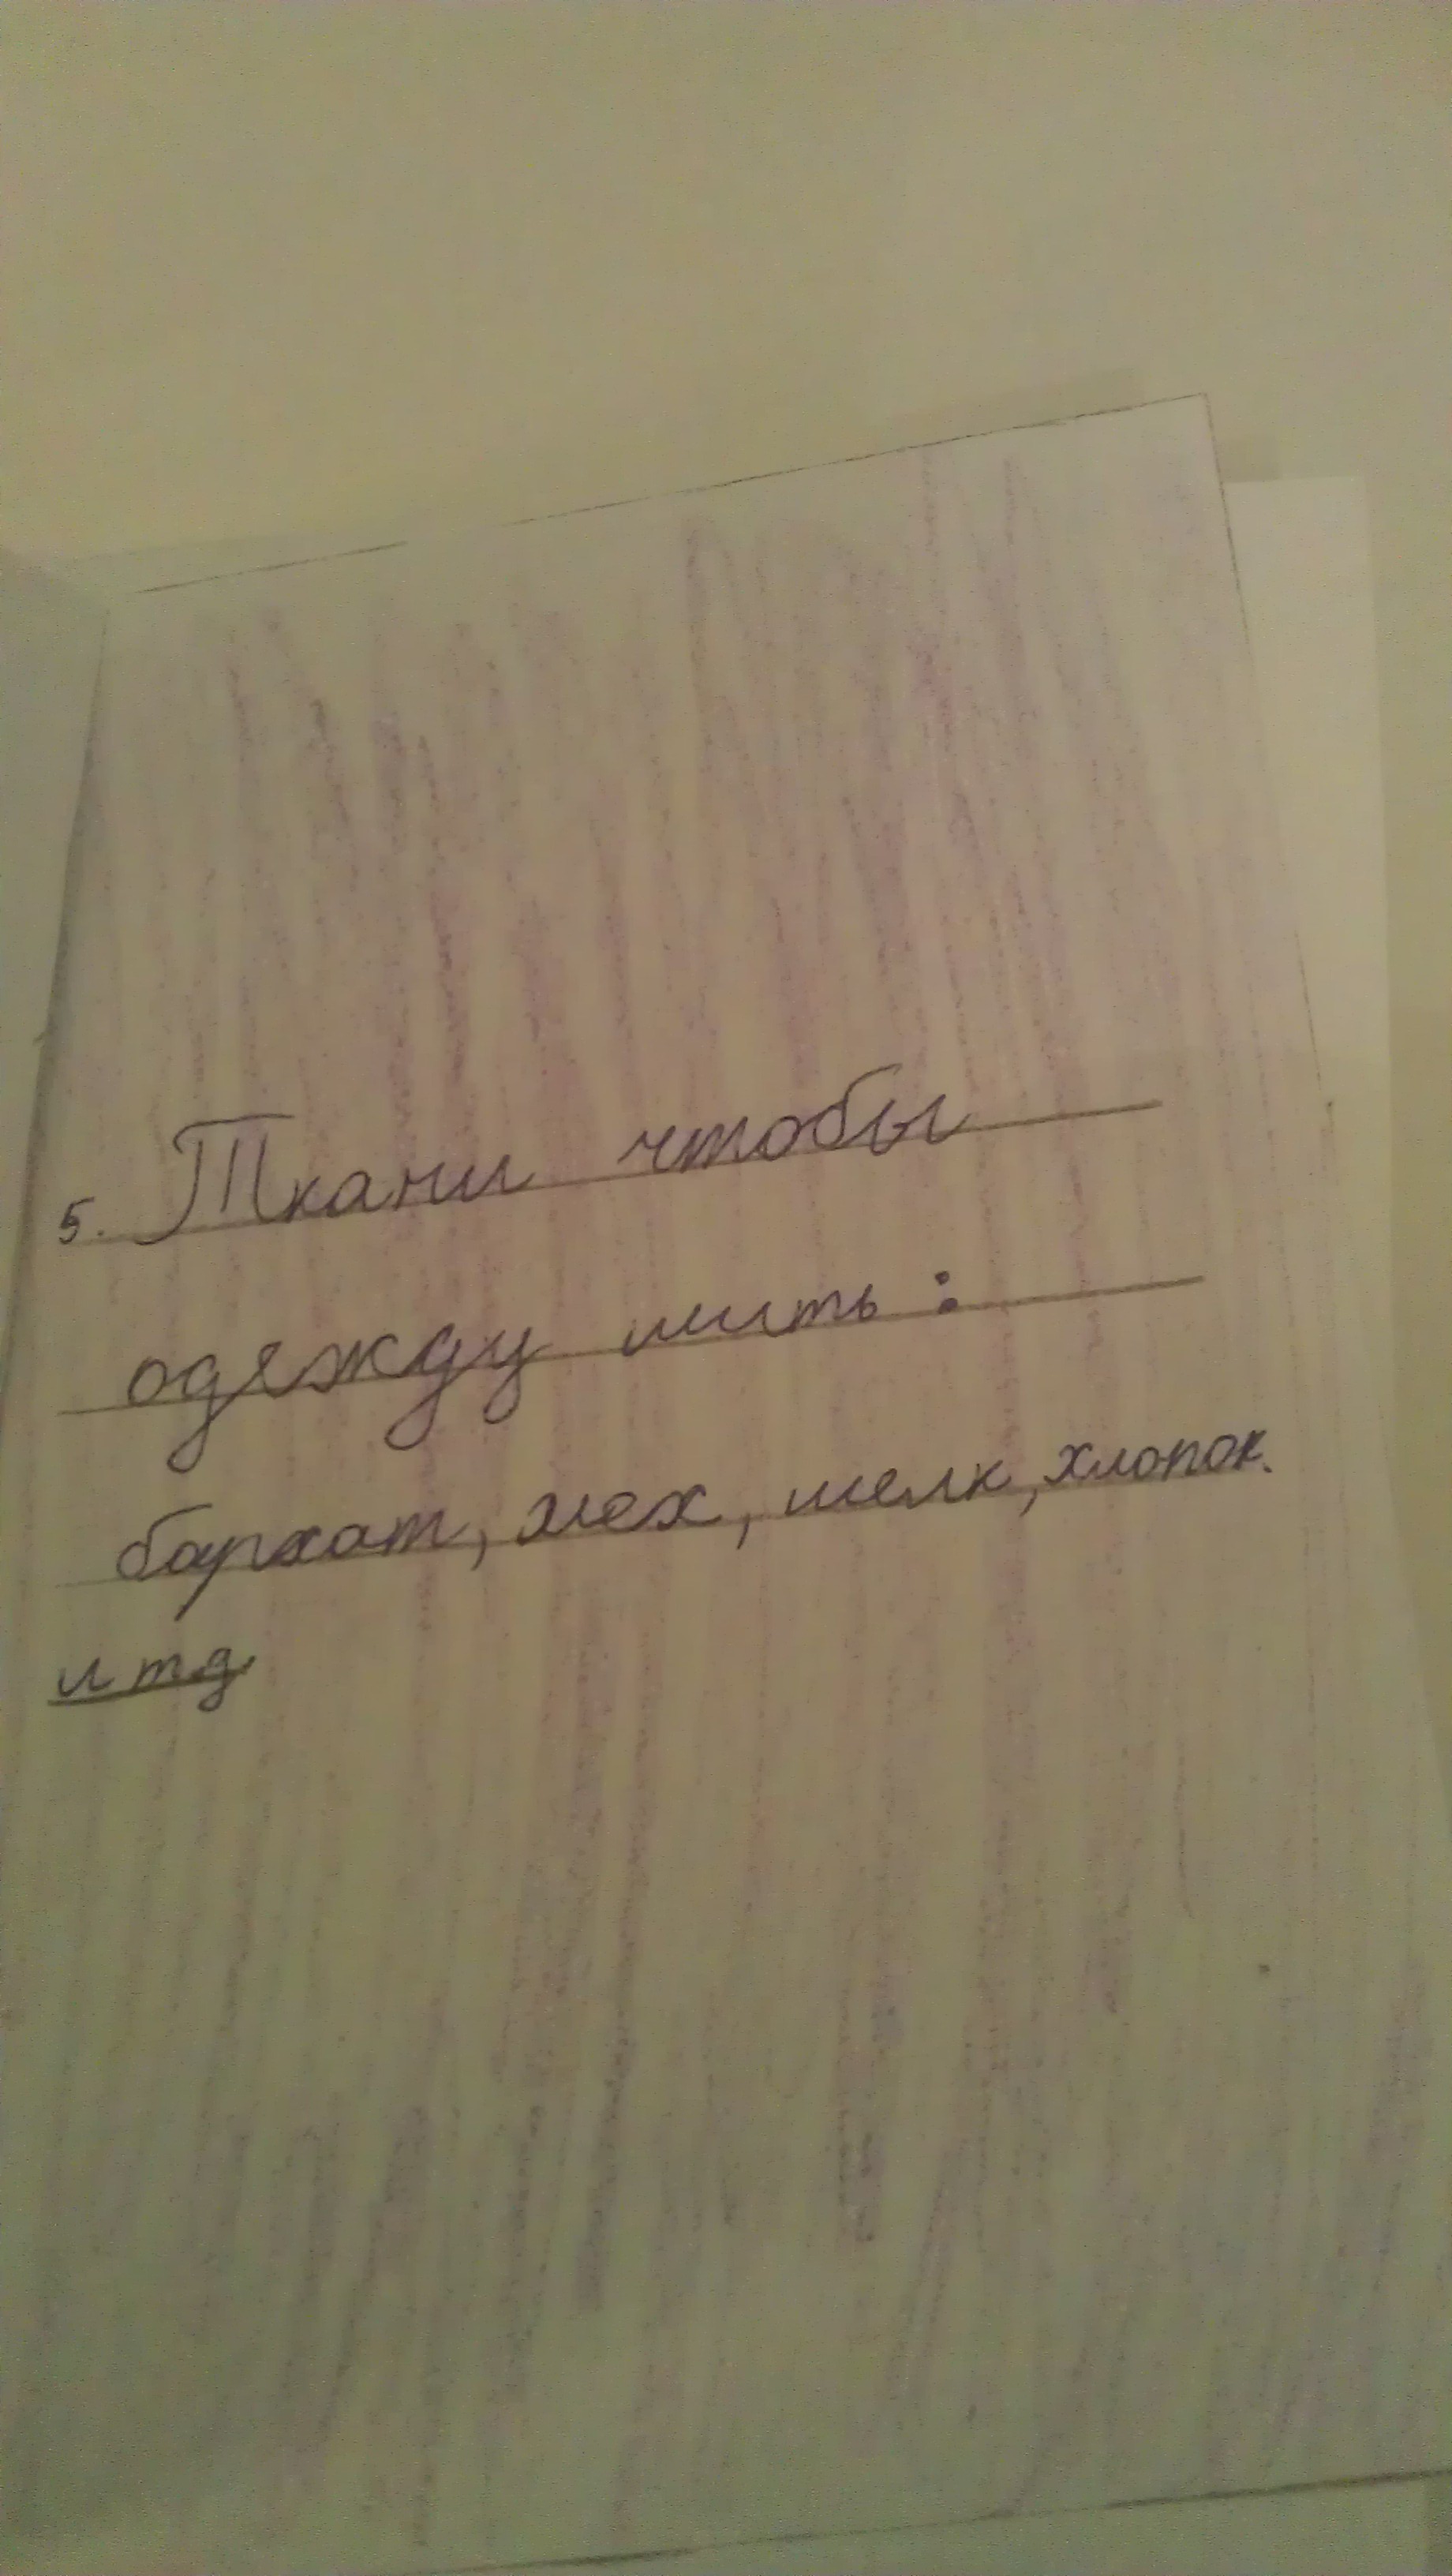 5. Ткани чтобы
одежду шить :
бархат, мех, шелк, хлопок.
и тд